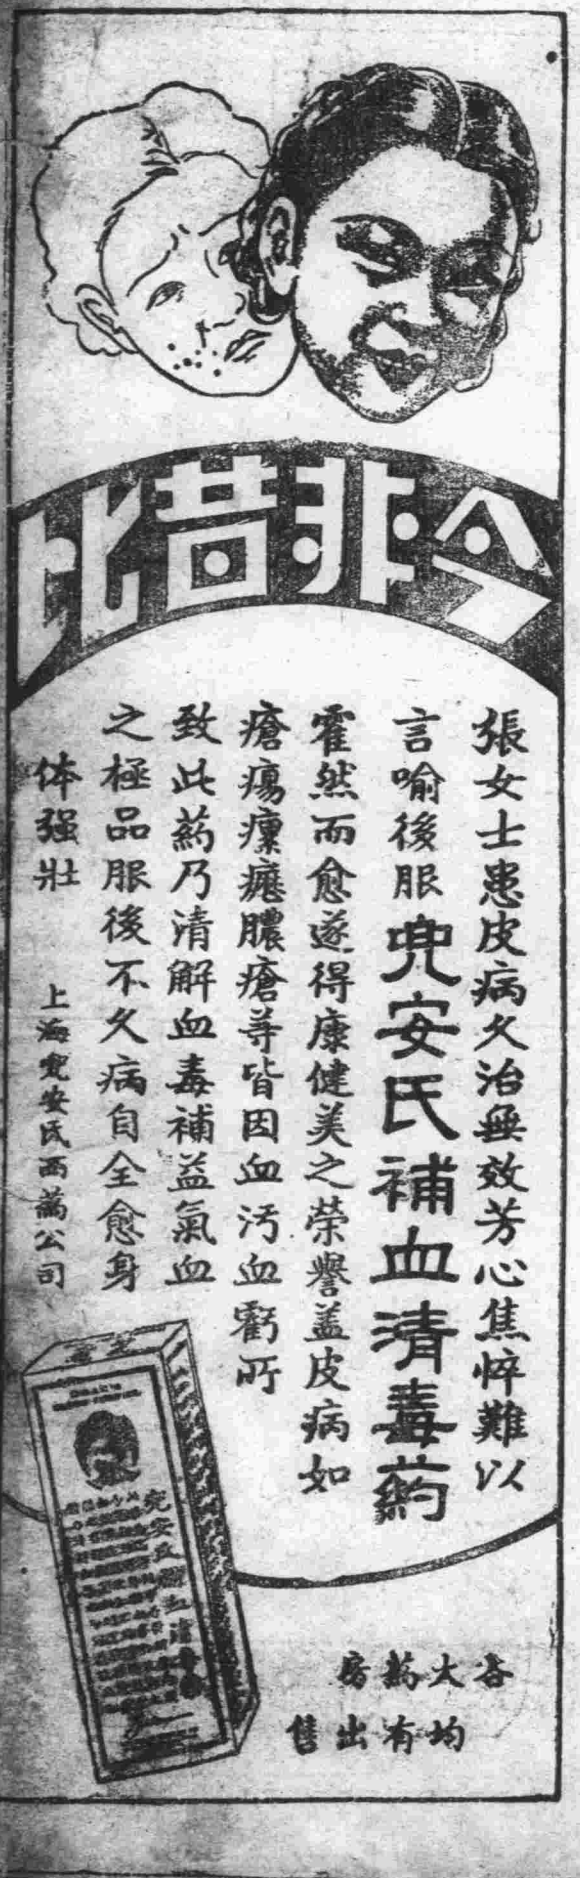 今非昔比
張女士患皮病久治無效芳心焦悴難以
言喻後服兜安氏補血清毒葯
霍然而愈遂得康健美之榮譽蓋皮病如
瘡瘍瘰癧膿瘡等皆因血污血虧所
致此葯乃清解血毒補益氣血
之極品服後不久病自全愈身
体强壯
上海兜安氏西葯公司
兜安氏補血清毒
各大葯房
均有出售